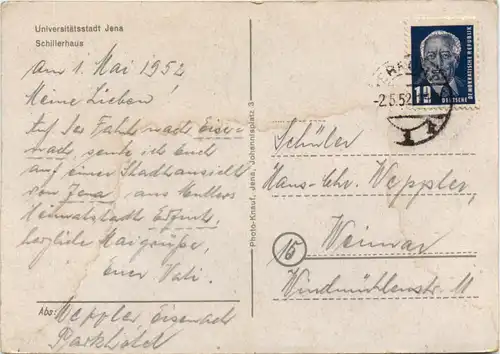 Universitätsstadt Jena
Schillerhaus
am 1. Mai 1952
Meine Lieben!
Auf der Fahrt nach Eise-
nach, sende ich Euch
auf einer Stadtansicht
von Jena aus Mutters
Heimatstadt Erfurt,
herzliche Maigrüße,
Euer Vati.
Abs: Weppler, Eisenach
Parkhotel
Photo-Knauf, Jena, Johannisplatz 3
DEUTSCHE
DEMOKRATISCHE REPUBLIK
-2.5.52
Schüler
Hans-Chr. Weppler,
15
Weimar
Windmühlenstr. 11